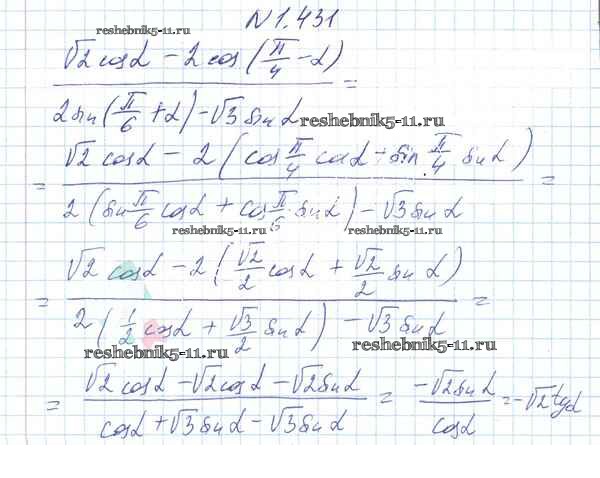 N 1.431
reshebnik5-11.ru
(√2 cosα − 2cos(π/4 − α)) / (2sin(π/6 + α) − √3 sinα) =
reshebnik5-11.ru
= (√2 cosα − 2(cos π/4 cosα + sin π/4 sinα)) / (2(sin π/6 cosα + cos π/6 sinα) − √3 sinα) =
reshebnik5-11.ru
= (√2 cosα − 2(√2/2 cosα + √2/2 sinα)) / (2(1/2 cosα + √3/2 sinα) − √3 sinα) =
reshebnik5-11.ru reshebnik5-11.ru
= (√2 cosα − √2 cosα − √2 sinα) / (cosα + √3 sinα − √3 sinα) = (−√2 sinα) / cosα = −√2 tgα